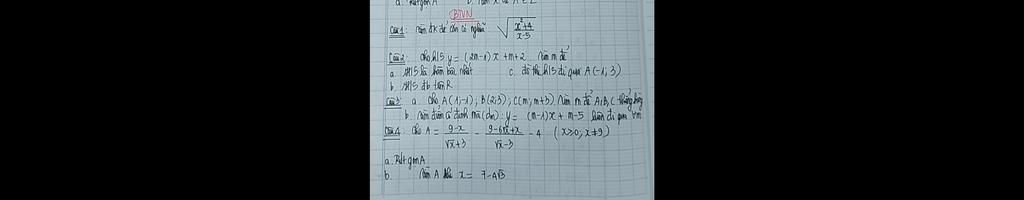 a. Rút gọn A
BTVN
Câu 1: Tìm đk để căn có nghĩa √((x²+4)/(x-5))
Câu 2: Cho h/s y = (2m-1)x + m+2 Tìm m để
a. H/s là hàm bậc nhất c. đồ thị h/s đi qua A(-1; 3)
b. H/s đb trên R
Câu 3: a. Cho A(1;-1); B(2;3); C(m; m+3) Tìm m để A,B,C thẳng hàng
b. Tìm điểm cố định mà (dm): y = (m-1)x + m-5 luôn đi qua ∀m
Câu 4: Cho A = (9-x)/(√x+3) - (9-6√x+x)/(√x-3) - 4 (x≥0; x≠9)
a. Rút gọn A
b. Tìm A khi x = 7-4√3